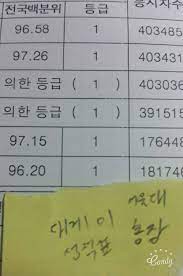 전국백분위 등급 응시자수
96.58 1 403484
97.26 1 403431
의한 등급 ( 1 ) 403036
의한 등급 ( 1 ) 391515
97.15 1 176448
96.20 1 181746
이 서울대
성적표 총장
Candy